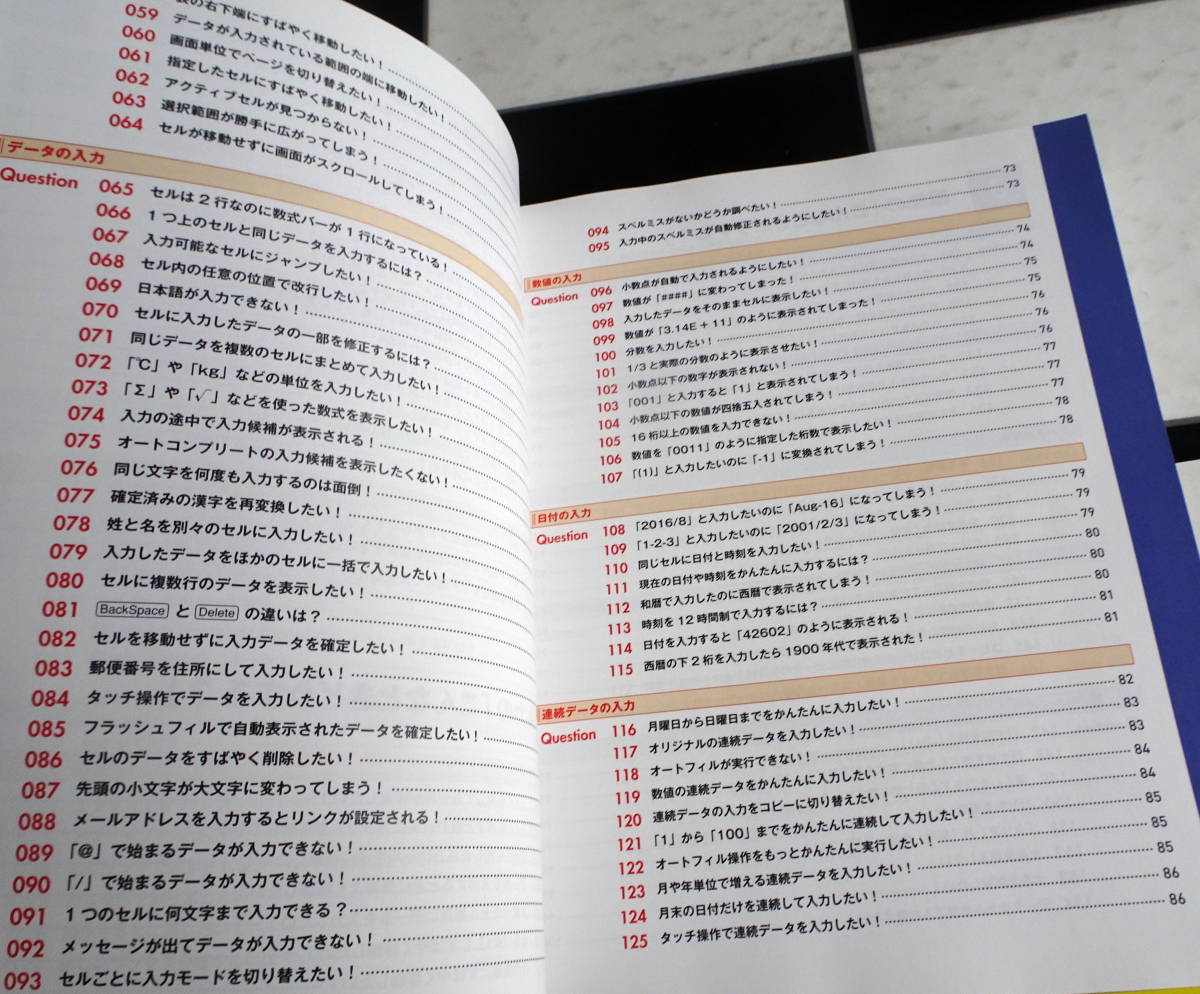 の右下端にすばやく移動したい!
059 データが入力されている範囲の端に移動したい!
060 画面単位でページを切り替えたい!
061 指定したセルにすばやく移動したい!
062 アクティブセルが見つからない!
063 選択範囲が勝手に広がってしまう!
064 セルが移動せずに画面がスクロールしてしまう!
データの入力
Question 065 セルは2行なのに数式バーが1行になっている!
066 1つ上のセルと同じデータを入力するには?
067 入力可能なセルにジャンプしたい!
068 セル内の任意の位置で改行したい!
069 日本語が入力できない!
070 セルに入力したデータの一部を修正するには?
071 同じデータを複数のセルにまとめて入力したい!
072 「℃」や「kg」などの単位を入力したい!
073 「Σ」や「√」などを使った数式を表示したい!
074 入力の途中で入力候補が表示される!
075 オートコンプリートの入力候補を表示したくない!
076 同じ文字を何度も入力するのは面倒!
077 確定済みの漢字を再変換したい!
078 姓と名を別々のセルに入力したい!
079 入力したデータをほかのセルに一括で入力したい!
080 セルに複数行のデータを表示したい!
081 BackSpace と Delete の違いは?
082 セルを移動せずに入力データを確定したい!
083 郵便番号を住所にして入力したい!
084 タッチ操作でデータを入力したい!
085 フラッシュフィルで自動表示されたデータを確定したい!
086 セルのデータをすばやく削除したい!
087 先頭の小文字が大文字に変わってしまう!
088 メールアドレスを入力するとリンクが設定される!
089 「@」で始まるデータが入力できない!
090 「/」で始まるデータが入力できない!
091 1つのセルに何文字まで入力できる?
092 メッセージが出てデータが入力できない!
093 セルごとに入力モードを切り替えたい!
094 スペルミスがないかどうか調べたい! 73
095 入力中のスペルミスが自動修正されるようにしたい! 73
数値の入力
Question 096 小数点が自動で入力されるようにしたい! 74
097 数値が「####」に変わってしまった! 74
098 入力したデータをそのままセルに表示したい! 75
099 数値が「3.14E+11」のように表示されてしまった! 75
100 分数を入力したい! 76
101 1/3と実際の分数のように表示させたい! 76
102 小数点以下の数字が表示されない! 76
103 「001」と入力すると「1」と表示されてしまう! 77
104 小数点以下の数値が四捨五入されてしまう! 77
105 16桁以上の数値を入力できない! 77
106 数値を「0011」のように指定した桁数で表示したい! 78
107 「(1)」と入力したいのに「-1」に変換されてしまう! 78
日付の入力
Question 108 「2016/8」と入力したいのに「Aug-16」になってしまう! 79
109 「1-2-3」と入力したいのに「2001/2/3」になってしまう! 79
110 同じセルに日付と時刻を入力したい! 79
111 現在の日付や時刻をかんたんに入力するには? 80
112 和暦で入力したのに西暦で表示されてしまう! 80
113 時刻を12時間制で入力するには? 80
114 日付を入力すると「42602」のように表示される! 81
115 西暦の下2桁を入力したら1900年代で表示された! 81
連続データの入力
Question 116 月曜日から日曜日までをかんたんに入力したい! 82
117 オリジナルの連続データを入力したい! 83
118 オートフィルが実行できない! 83
119 数値の連続データをかんたんに入力したい! 84
120 連続データの入力をコピーに切り替えたい! 84
121 「1」から「100」までをかんたんに連続して入力したい! 85
122 オートフィル操作をもっとかんたんに実行したい! 85
123 月や年単位で増える連続データを入力したい! 85
124 月末の日付だけを連続して入力したい! 86
125 タッチ操作で連続データを入力したい! 86